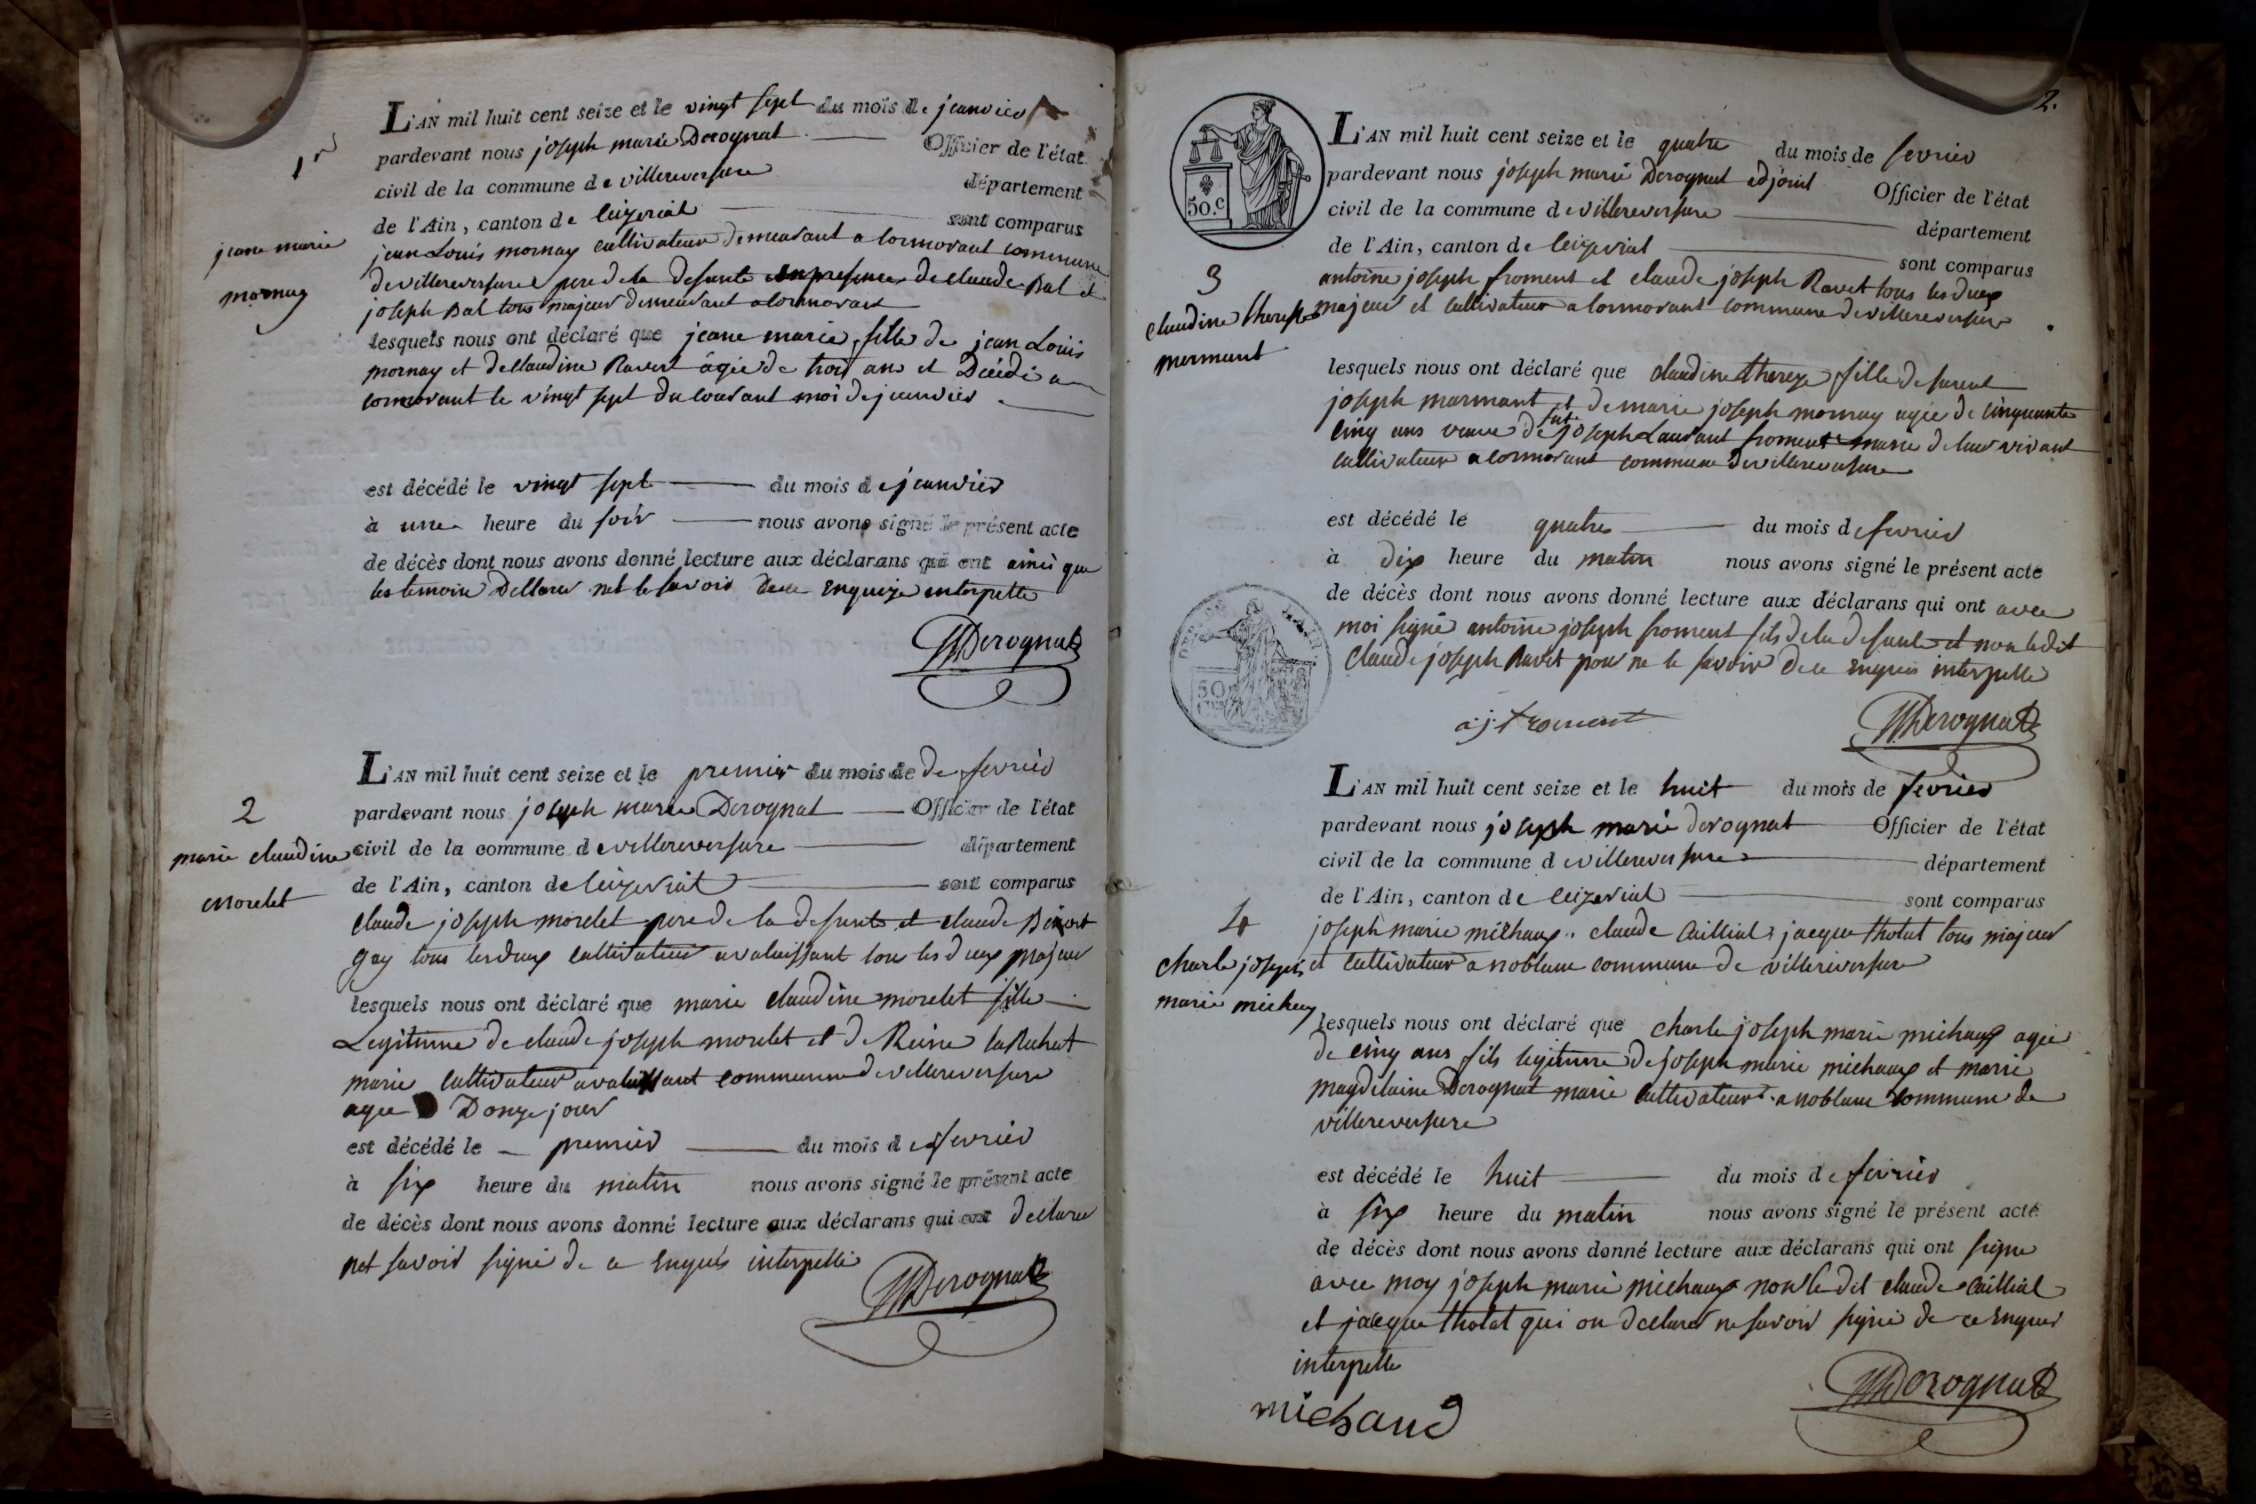 1er
jeane marie
mornay
L'AN mil huit cent seize et le vingt sept du mois de jeanvier
pardevant nous joseph marie Derognat Officier de l'état
civil de la commune de villereversure département
de l'Ain, canton de Ceizeriat sont comparus
jean Louis mornay cultivateur demeurant a cormorant commune
de villereversure pere de la defunte en presence de claude Bal et
joseph Bal tous majeur demeurant a cormorant
lesquels nous ont déclaré que jeane marie fille de jean Louis
mornay et de Claudine Ravet âgée de trois ans et Décédé a
cormorant le vingt sept du courant moi de jeanvier
est décédé le vingt sept du mois de jeanvier
à une heure du soir nous avons signé le présent acte
de décès dont nous avons donné lecture aux déclarans qui ont ainsi que
les temoins Déclaré net le savoir de ce enquize interpelle
JMDerognat
2
marie claudine
morelet
L'AN mil huit cent seize et le premier du mois de de fevrier
pardevant nous joseph marie Derognat Officier de l'état
civil de la commune de villereversure département
de l'Ain, canton de Ceizeriat sont comparus
claude joseph morelet pere de la defunte et claude Benoit
gay tous les deux cultivateur a valuissant tou les deux majeur
lesquels nous ont déclaré que marie claudine morelet fille
Legitime de claude joseph morelet et de Reine
marie cultivateur a valuissant commune de villereversure
agee Donze jour
est décédé le premier du mois de fevrier
à six heure du matin nous avons signé le présent acte
de décès dont nous avons donné lecture aux déclarans qui ont déclare
net savoir signé de ce enquis interpelle
JMDerognat
2.
50.C
3
claudine therese
mermant
L'AN mil huit cent seize et le quatre du mois de fevrier
pardevant nous joseph marie Derognat adjoint Officier de l'état
civil de la commune de villereversure département
de l'Ain, canton de Ceizeriat sont comparus
antoine joseph froment et claude joseph Ravet tous les deux
majeur et cultivateur a cormorant commune de villereversure
lesquels nous ont déclaré que claudine thereze fille de furent
joseph marmant et de marie joseph mornay agée de cinquante
cinq ans veuve de fut joseph Laurant froment marie de leur vivant
cultivateur a cormorant commune de villereversure
est décédé le quatre du mois de fevrier
à dix heure du matin nous avons signé le présent acte
de décès dont nous avons donné lecture aux déclarans qui ont avec
moi signé antoine joseph froment fils de la defunte et non ledit
claude joseph Ravet pour ne le savoir de ce enquis interpelle
50
a j froment
JMDerognat
4
charle joseph
marie michaux
L'AN mil huit cent seize et le huit du mois de fevrier
pardevant nous joseph marie derognat Officier de l'état
civil de la commune de villereversure département
de l'Ain, canton de Ceizeriat sont comparus
joseph marie michaux claude Cailliat jacque tholat tous majeur
et cultivateur a noblane commune de villereversure
lesquels nous ont déclaré que charle joseph marie michaux agée
de cinq ans fils legitime de joseph marie michaux et marie
magdelaine Derognat marie cultivateur a noblane commune de
villereversure
est décédé le huit du mois de fevrier
à six heure du matin nous avons signé le présent acte
de décès dont nous avons donné lecture aux déclarans qui ont signe
avec moy joseph marie michaux non le dit claude Cailliat
et jacque tholat qui on declarer ne savoir signé de ce enquis
interpelle
michaud
JMDerognat